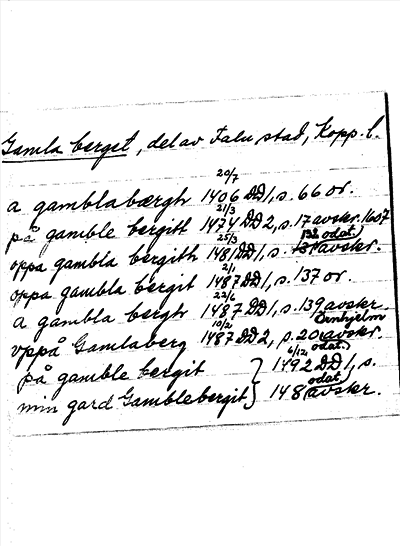 Gamla berget, del av Falu stad, Kopp. l.
a gambla bærgh 20/7 1406 DD1, s. 66 or.
på gamble bergitt 21/3 1474 DD2, s. 17 avskr. 1607
oppa gambla bergith 25/3 1481 DD1, s. 132 odat. avskr.
oppa gambla bergit 2/1 1487 DD1, s. 137 or.
a gambla bergh 22/6 1487 DD1, s. 139 avskr.
vppå Gamlaberg 10/2 1487 DD2, s. 20 Örnhjelm avskr.
på gamble bergit 6/12 1492 DD1, s.
min gard Gamblebergit 148 odat. avskr.